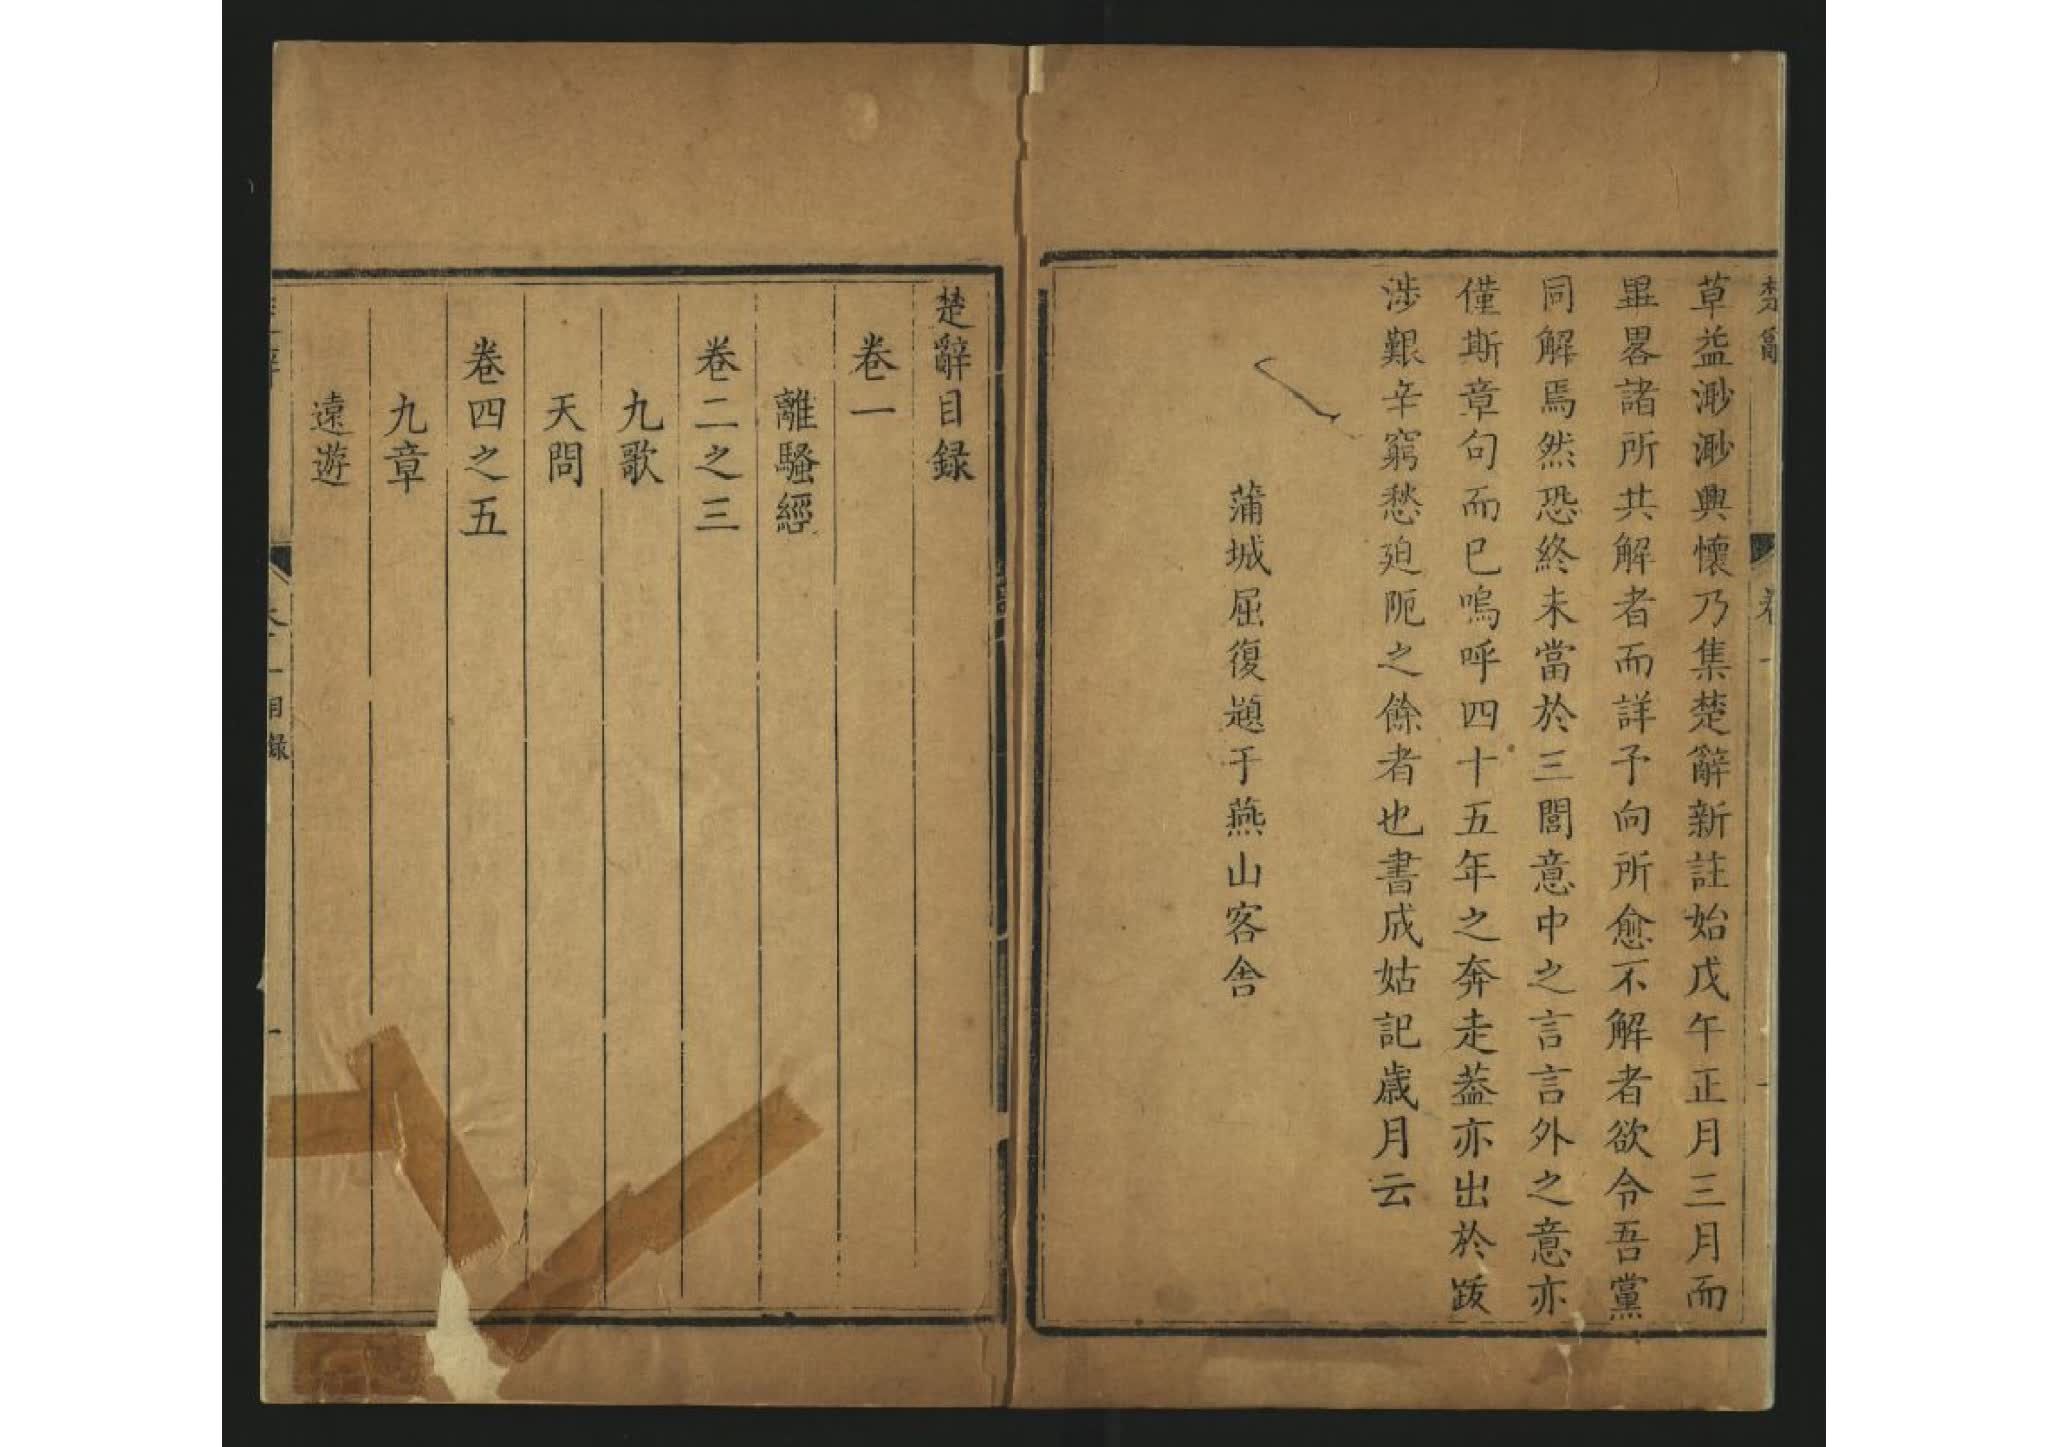 草益渺渺興懷乃集楚辭新註始戊午正月三月而
畢畧諸所共解者而詳予向所愈不解者欲令吾黨
同解焉然恐終未當於三閭意中之言言外之意亦
僅斯章句而已嗚呼四十五年之奔走葢亦出於跋
涉艱辛窮愁廹阨之餘者也書成姑記歳月云
蒲城屈復題于燕山客舍
楚辭目録
卷一
離騷經
卷二之三
九歌
天問
卷四之五
九章
遠遊